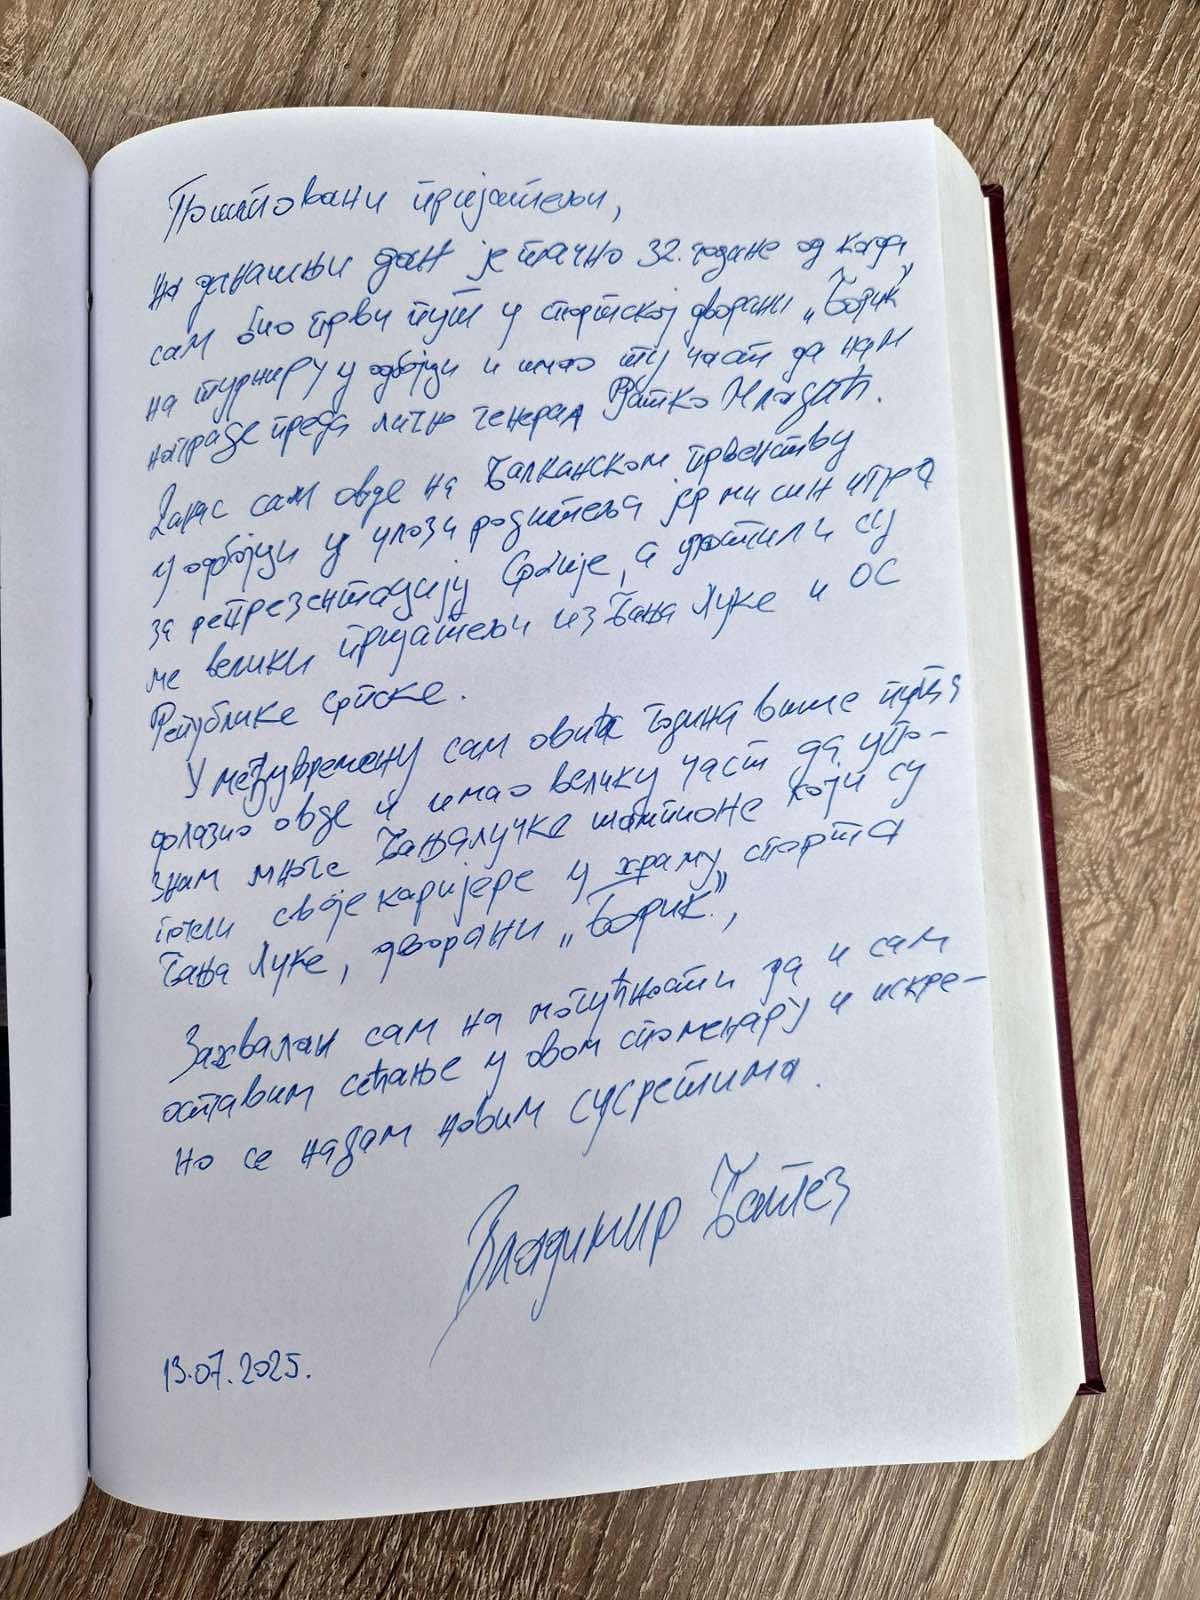 Поштовани пријатељи,
на данашњи дан је тачно 32. године од када
сам био први пут у спортској дворани „Борик"
на турниру у одбојци и имао ту част да нам
награде преда лично генерал Ратко Младић.
Данас сам овде на Балканском првенству
у одбојци у улози родитеља јер ми син игра
за репрезентацију Србије, а угостили су
ме велики пријатељи из Бања Луке и ОС
Републике Српске.
У међувремену сам ових година више пута
долазио овде и имао велику част да упо-
знам многе Бањалучке шампионе који су
почели своје каријере у храму спорта
Бања Луке, дворани „Борик",
Захвалан сам на могућности да и сам
оставим сећање у овом споменару и искре-
но се надам новим сусретима.
Владимир Батез
13.07.2025.